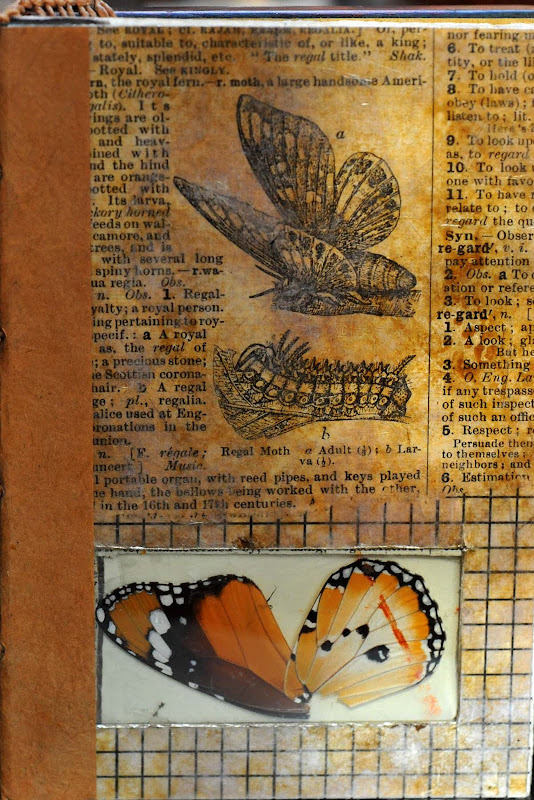 See ROYAL; cf. RAJAH, REGALIA.] Of, per-
to, suitable to, characteristic of, or like, a king;
stately, splendid, etc. "The regal title." Shak.
— Royal. See KINGLY.
rn, the royal fern. — r. moth, a large handsome Ameri-
oth (Cithero-
galis). Its
ings are ol-
potted with
and heav-
ined with
nd the hind
are orange-
potted with
Its larva,
ckory horned
feeds on wal-
camore, and
trees, and is
with several long
spiny horns. — r. wa-
ua regia. Obs.
n. Obs. 1. Regal-
yalty; a royal person.
ing pertaining to roy-
specif.: a A royal
as, the regal of
; a precious stone;
e Scottish corona-
hair. b A regal
ge; pl., regalia.
alice used at Eng-
oronations in the
union.
n. [F. régale;
uncert.] Music.
l portable organ, with reed pipes, and keys played
he hand, the bellows being worked with the other,
in the 16th and 17th centuries.
a
b
Regal Moth a Adult (⅓); b Lar-
va (½).
nor fearing
6. To treat (
tity, or the li
7. To hold (o
8. To have c
obey (laws); t
listen to; lit.
Here's
9. To look up
as, to regard
10. To look
one with favo
11. To have
relate to; to
regard the qu
Syn. — Obser
re-gard', v. i.
pay attention
2. Obs. a To
ation or refere
3. To look; s
re-gard', n. [
1. Aspect; ap
2. A look; gla
But he
3. Something
4. O. Eng. La
if any trespass
of such inspect
of such an offic
5. Respect; r
Persuade them
to themselves;
neighbors; and
6. Estimation
Obs.